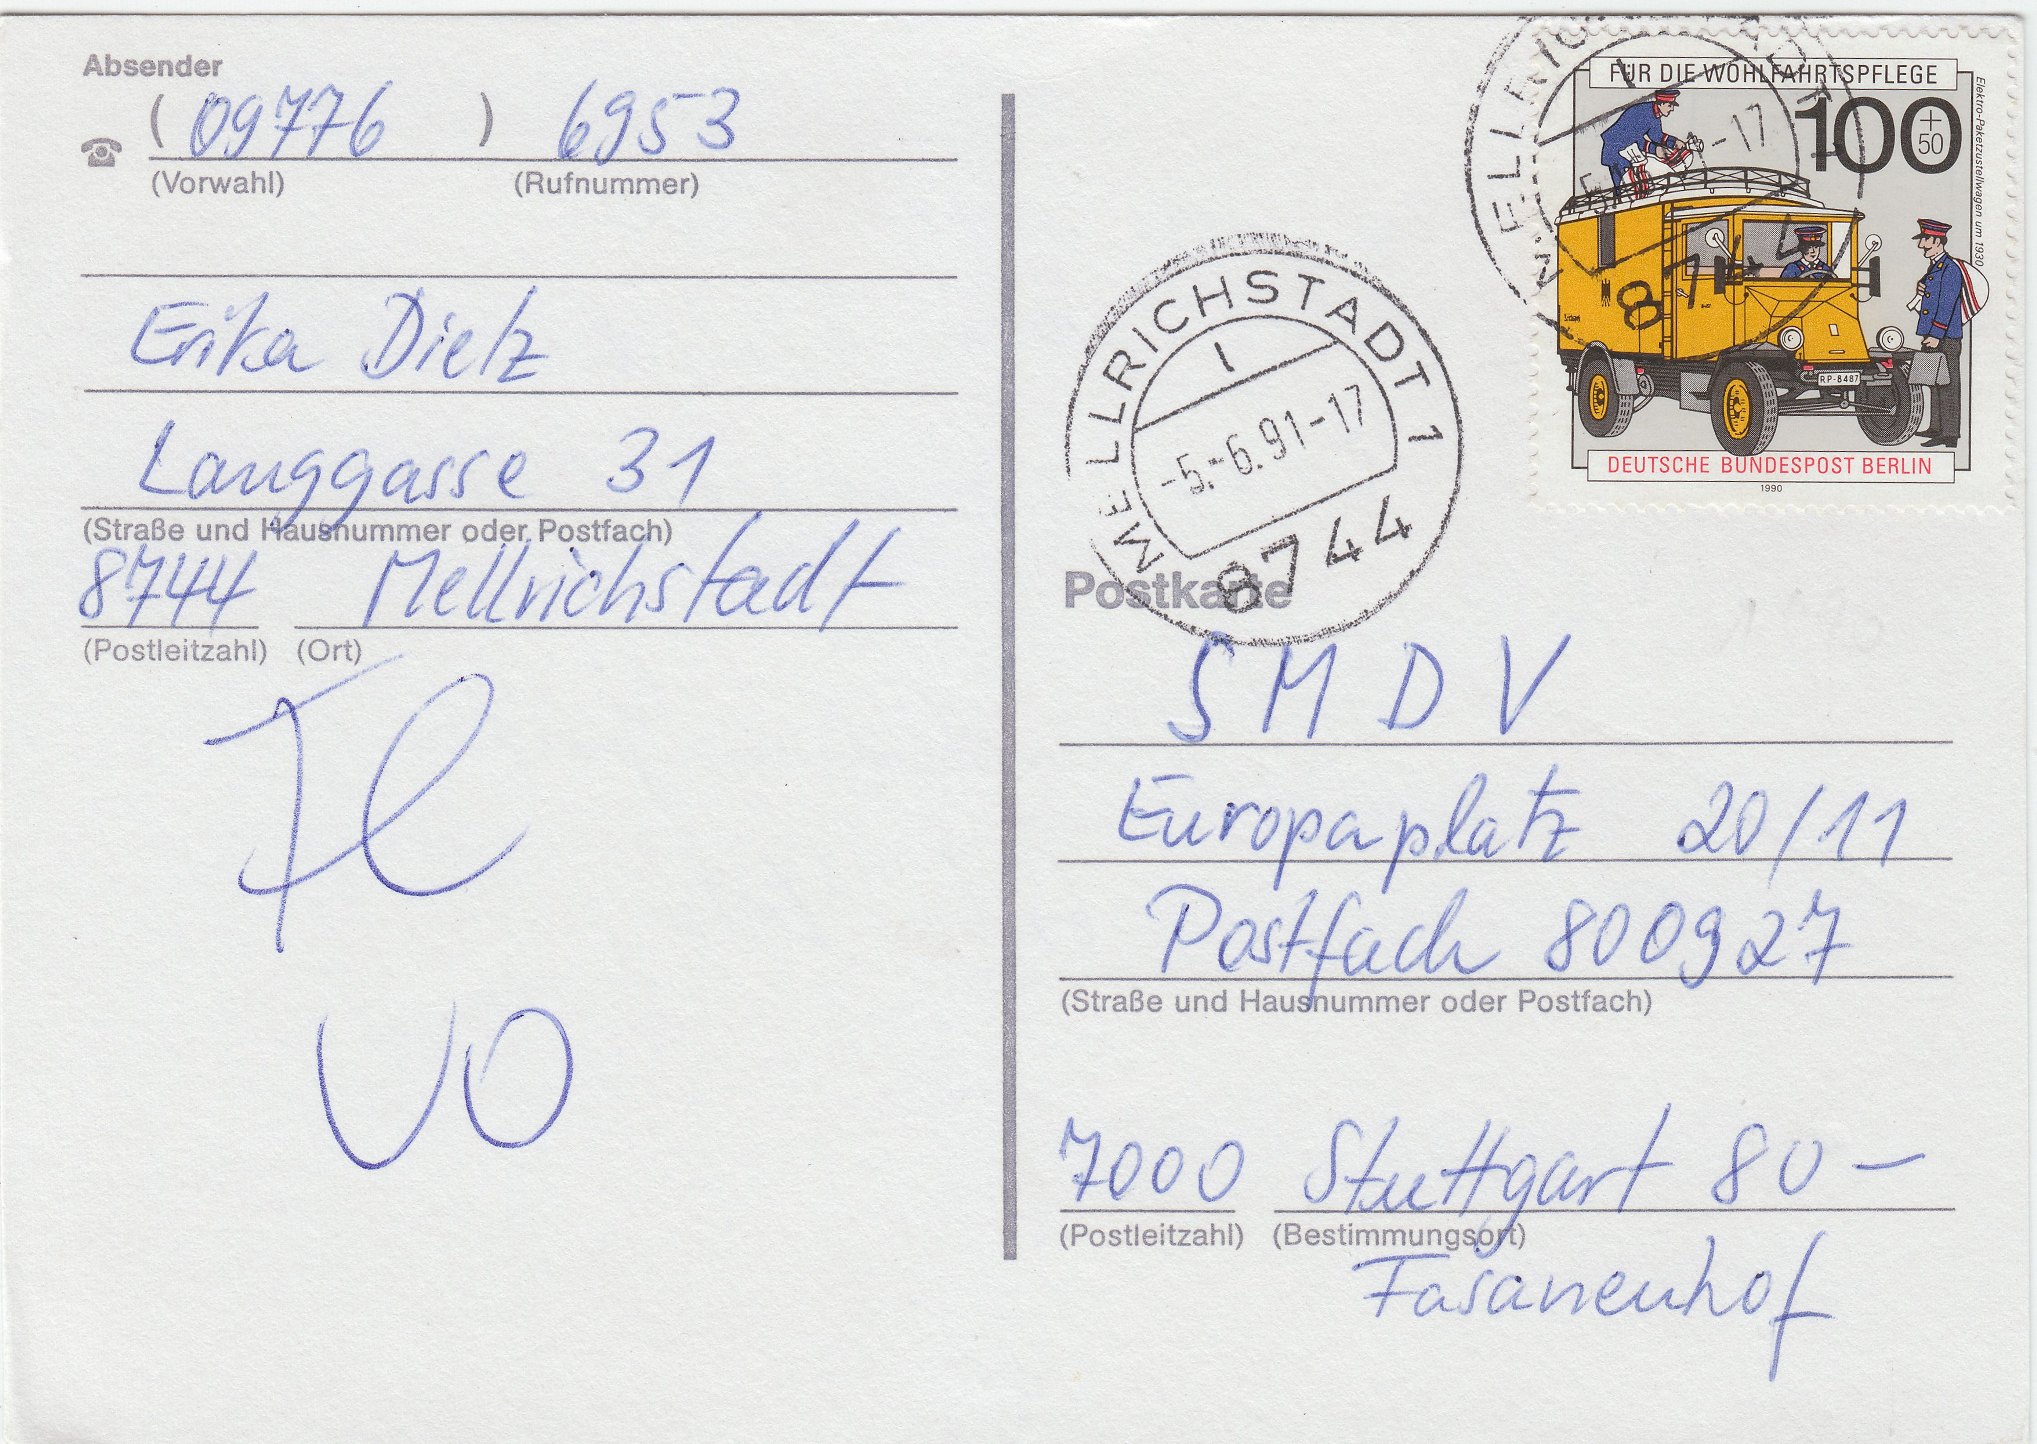 Absender
(09776) 6953
(Vorwahl) (Rufnummer)
Erika Dietz
Langgasse 31
(Straße und Hausnummer oder Postfach)
8744 Mellrichstadt
(Postleitzahl) (Ort)
VO
FÜR DIE WOHLFAHRTSPFLEGE
100
+
50
Elektro-Paketzustellwagen um 1930
RP-8487
DEUTSCHE BUNDESPOST BERLIN
1990
MELLRICHSTADT 1
l
-5.-6.91-17
8744
Postkarte
SMDV
Europaplatz 20/11
Postfach 800927
(Straße und Hausnummer oder Postfach)
7000 Stuttgart 80 –
(Postleitzahl) (Bestimmungsort)
Fasanenhof